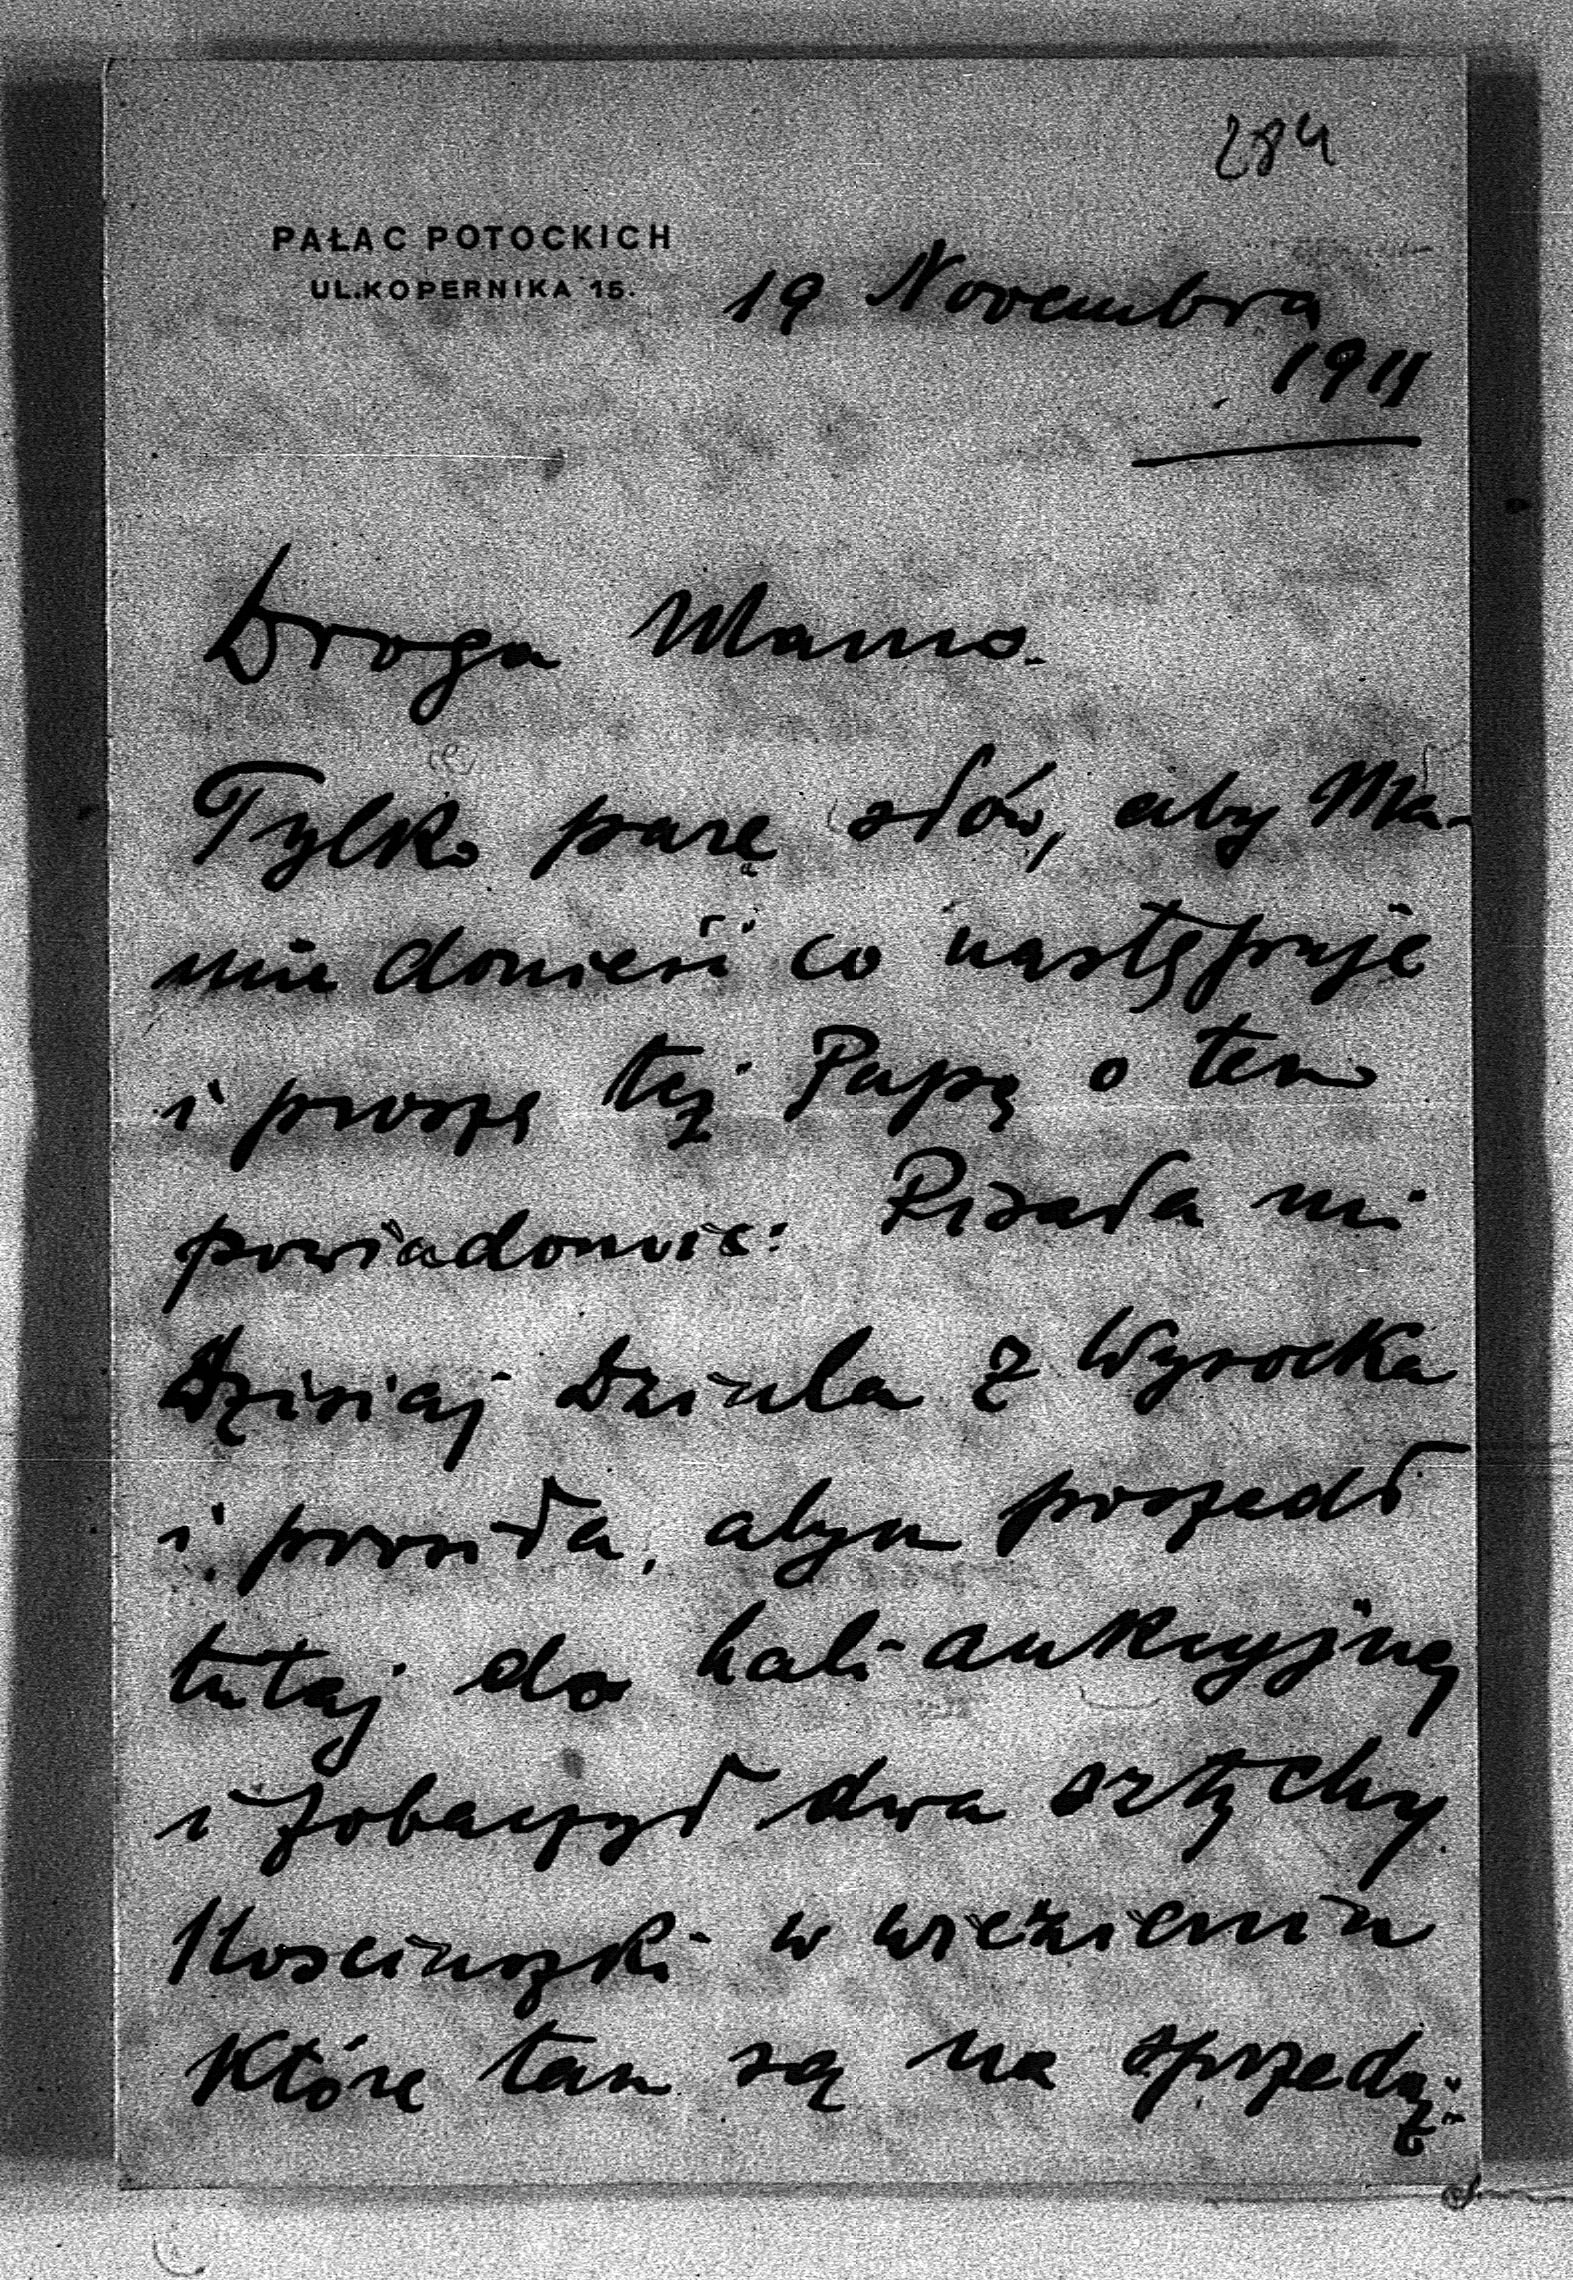 284
PAŁAC POTOCKICH
UL.KOPERNIKA 15.
19 Novembra
1911
Droga Mamo.
Tylko parę słów, aby Ma-
mie donieść co następuje
i proszę też Papę o tem
powiadomić: Pisała mi
Dzisiaj Dziula z Wysocka
i prosiła, abym poszedł
tutaj do hali aukcyjnej
i zobaczył dwa sztychy
Kosciuszki w więzieniu
które tam są na sprzedaż: